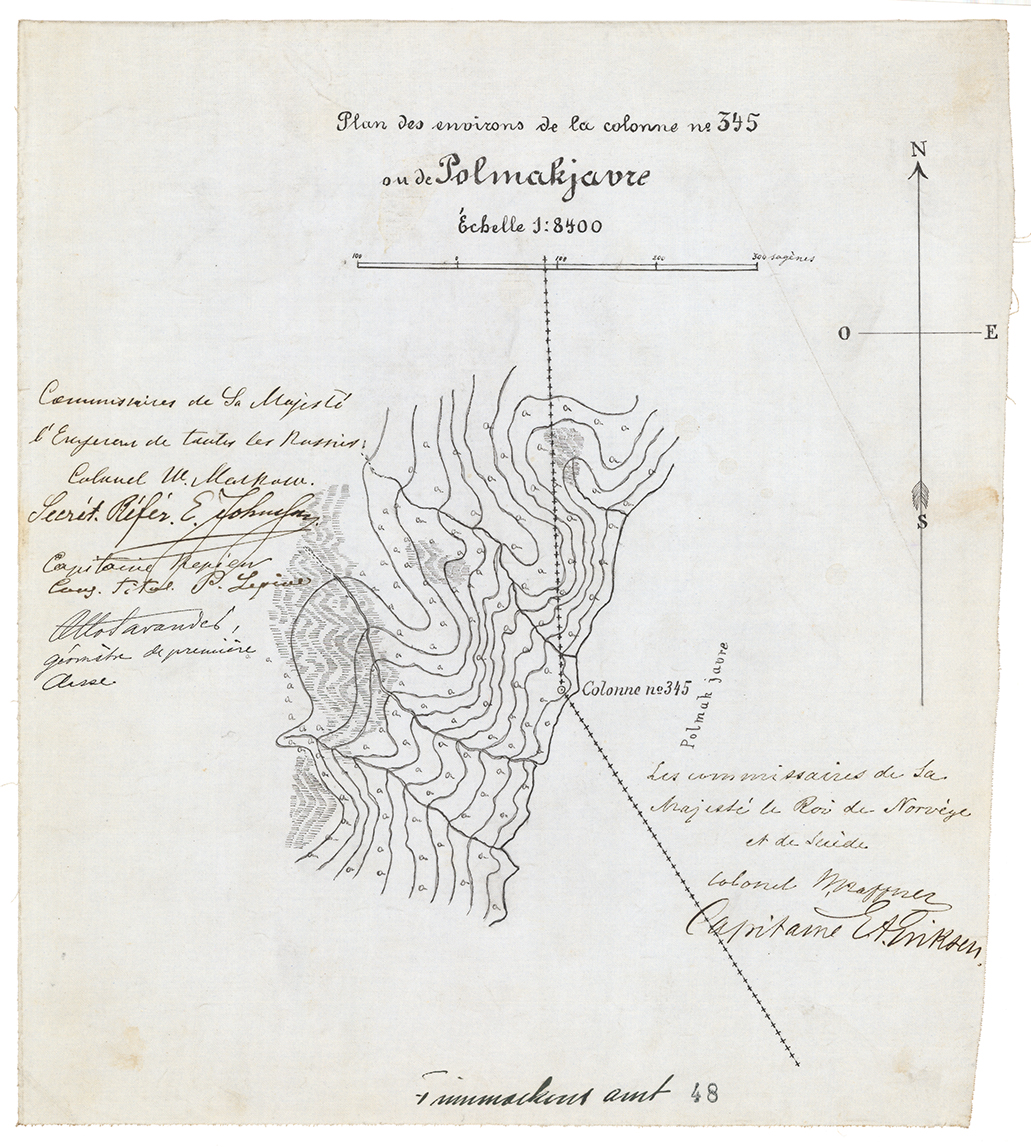 Plan des environs de la colonne no 345
ou de Polmakjavre
Échelle 1:8400
100 0 100 200 300 sagènes
N
O E
S
Commissaires de Sa Majesté
l'Empereur de toutes les Russies:
Colonel W.
Secrét. Référ. E.
Capitaine
P.
géomètre de première
classe
Colonne no 345
Polmak javre
Les commissaires de Sa
Majesté le Roi de Norvège
et de Suède
Colonel
Capitaine E.A. Eriksen.
amt 48